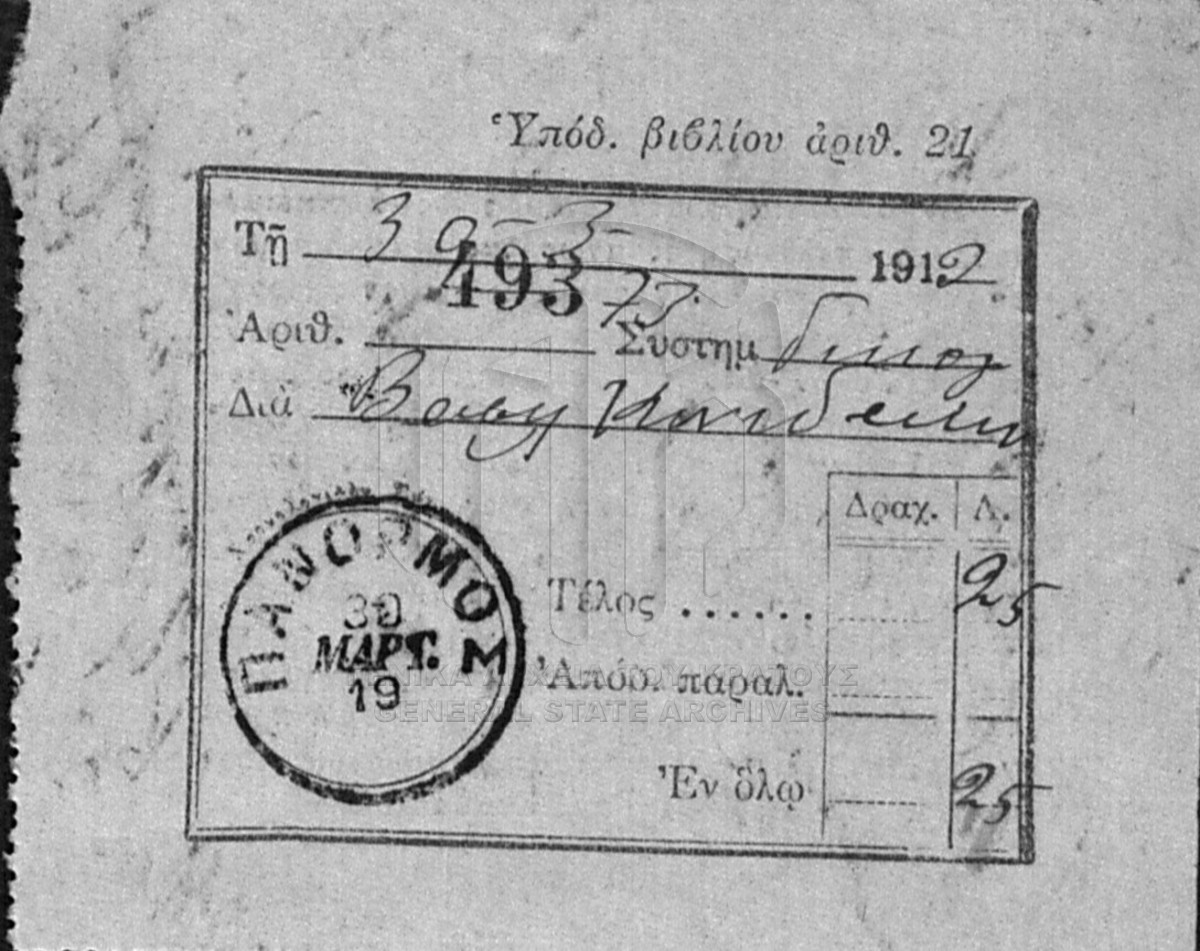 Ὑπόδ. βιβλίου ἀριθ. 21
Τῇ 30-3- 1912
493 73.
Ἀριθ. Συστημ
Διὰ
Δραχ. Λ.
ΠΑΝΟΡΜΟΣ
30
ΜΑΡΤ.
19
Τέλος ...... 25
Ἀπόδ. παραλ.
ΓΕΝΙΚΑ ΑΡΧΕΙΑ ΤΟΥ ΚΡΑΤΟΥΣ
GENERAL STATE ARCHIVES
Ἐν ὅλῳ 25